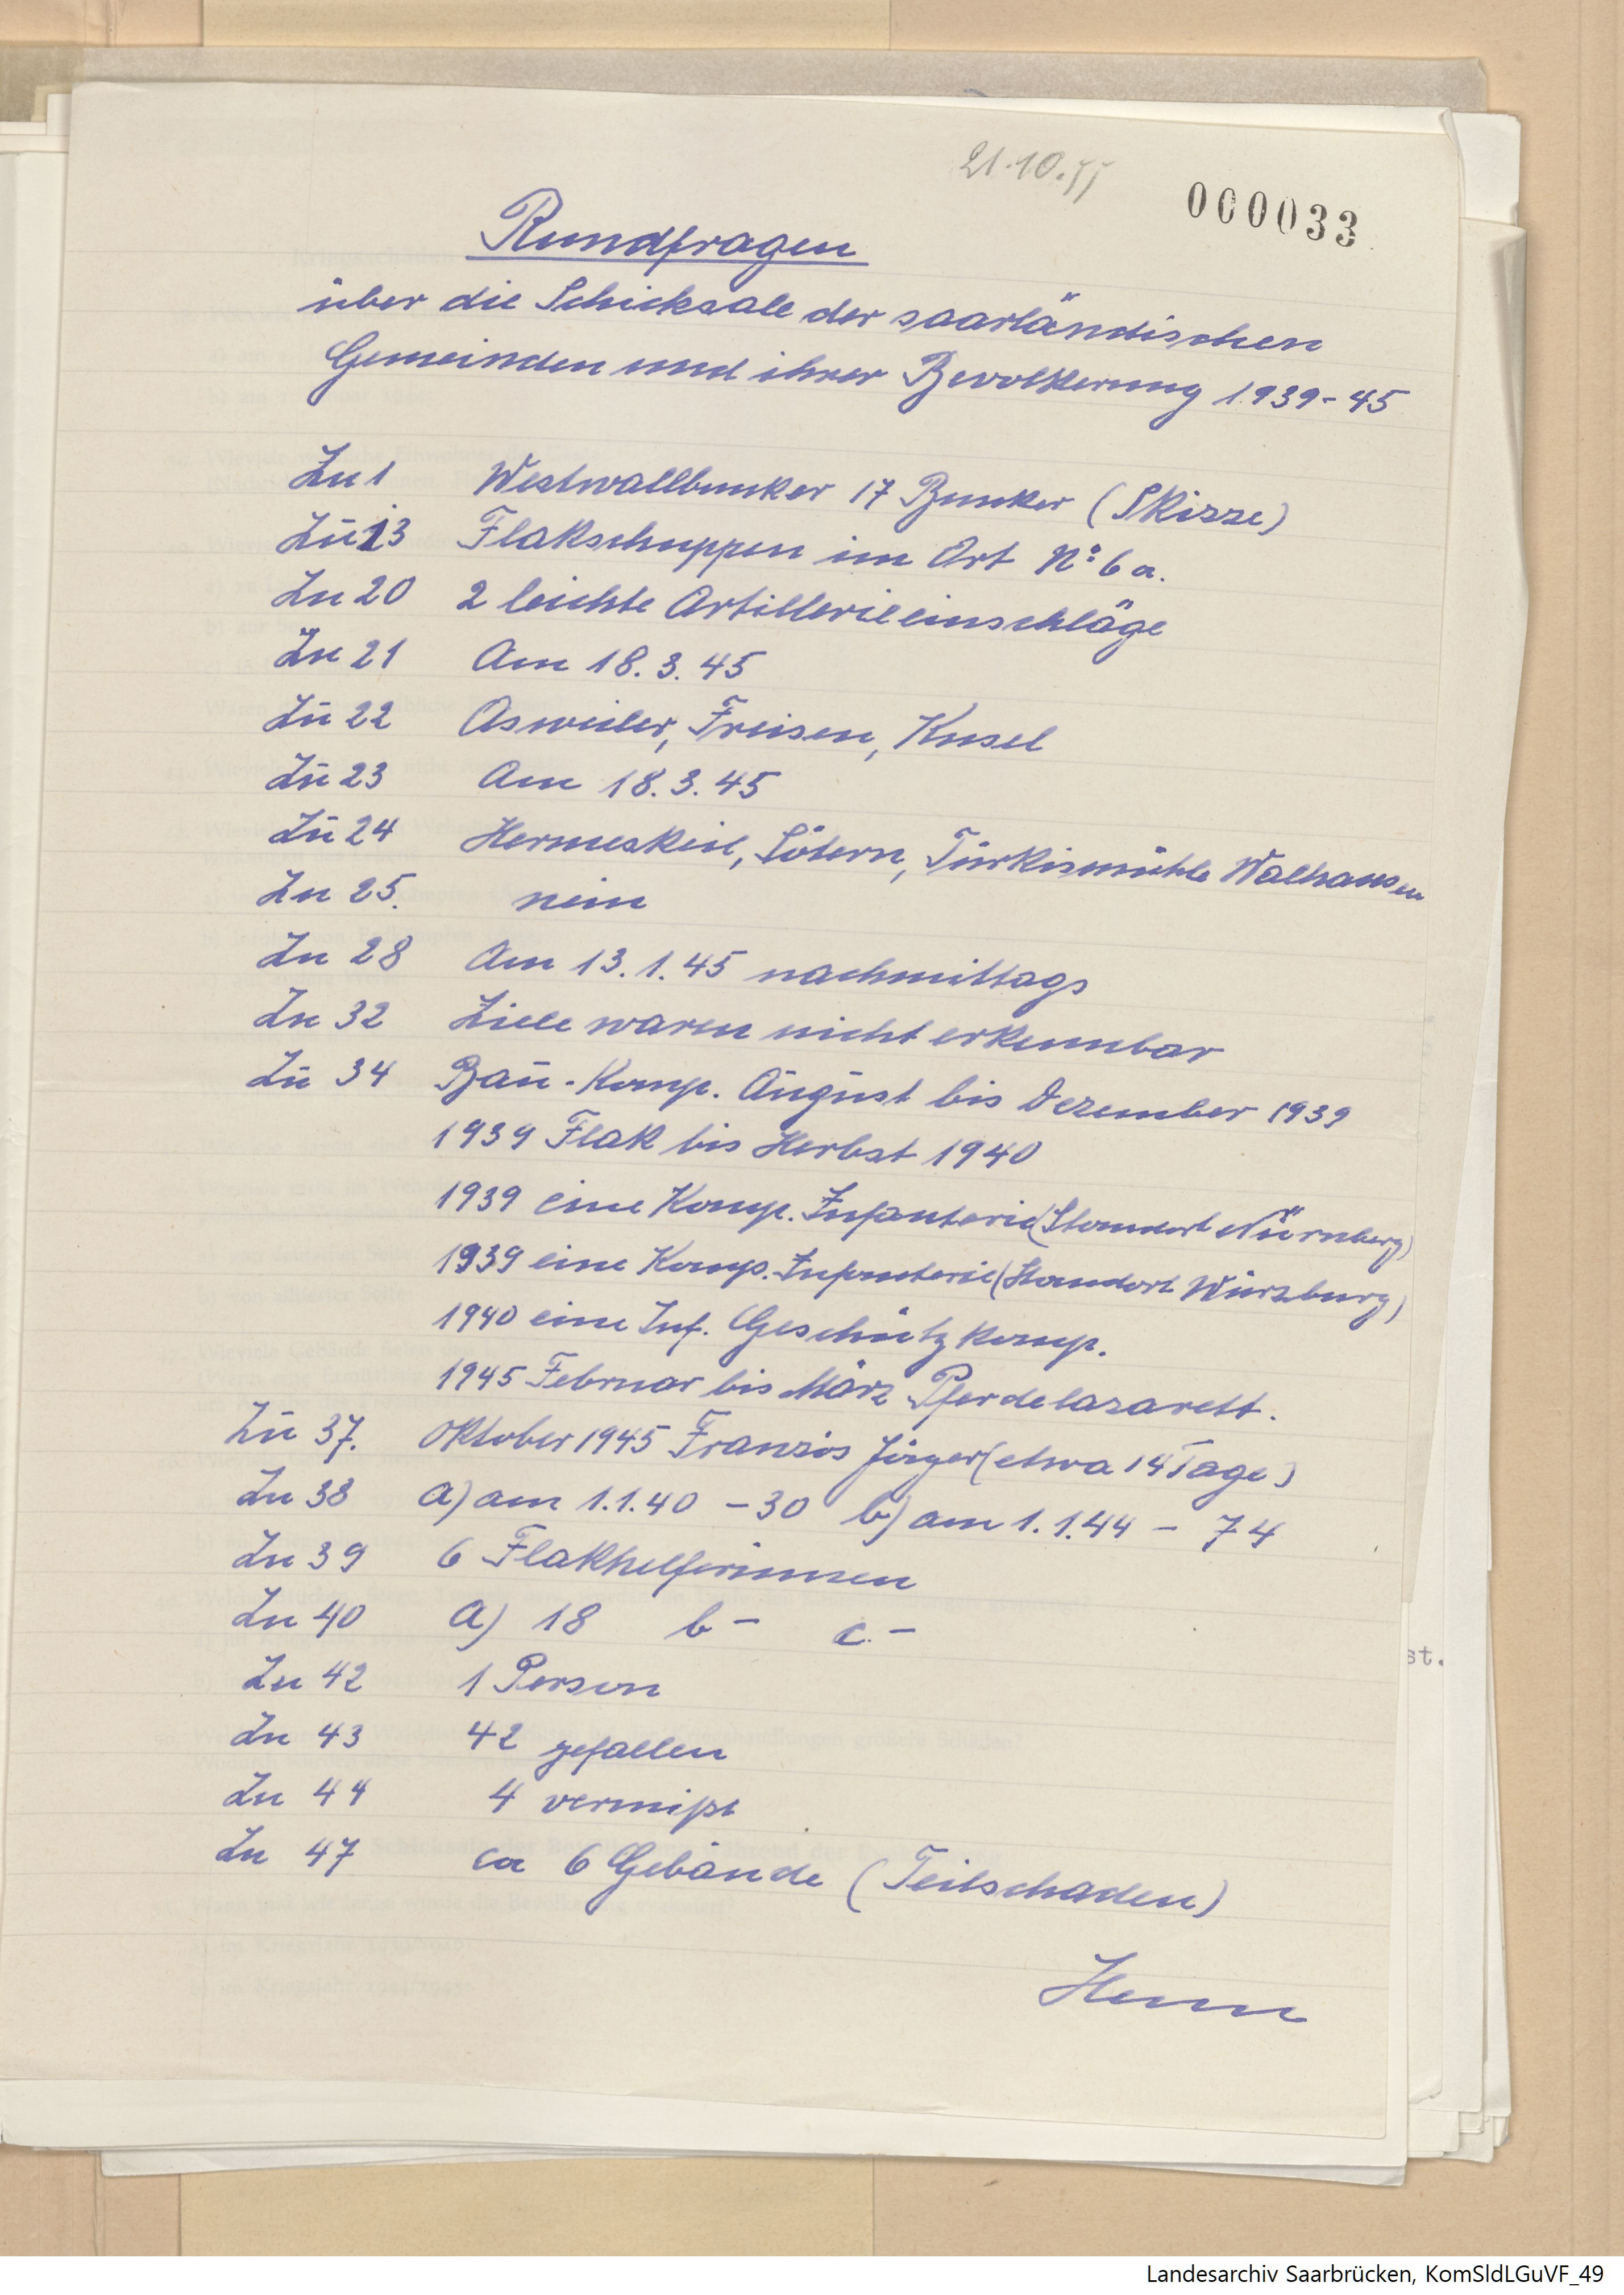 21.10.55
000033
Rundfragen
über die Schicksale der saarländischen
Gemeinden und ihrer Bevolkerung 1939-45
Zu 1 Westwallbunker 17 Bunker (Skizze)
Zu 13 Flakschuppen im Ort No 6a.
Zu 20 2 leichte Artillerieeinschläge
Zu 21 Am 18.3.45
Zu 22 Asweiler, Freisen, Kusel
Zu 23 Am 18.3.45
Zu 24 Hermeskeil, Sötern, Türkismühle Walhausen
Zu 25. nein
Zu 28 Am 13.1.45 nachmittags
Zu 32 Ziele waren nicht erkennbar
Zu 34 Bau-Komp. August bis Dezember 1939
1939 Flak bis Herbst 1940
1939 eine Komp. Infanterie (Standort Nürnberg)
1939 eine Komp. Infanterie (Standort Würzburg)
1940 eine Inf. Geschützkomp.
1945 Februar bis März Pferdelazarett.
Zu 37. Oktober 1945 Französ Jäger (etwa 14 Tage)
Zu 38 a) am 1.1.40 - 30 b) am 1.1.44 - 74
Zu 39 6 Flakhelferinnen
Zu 40 a) 18 b - c. -
Zu 42 1 Person
Zu 43 42 gefallen
Zu 44 4 vermißt
Zu 47 ca 6 Gebäude (Teilschaden)
Henn
st.
Landesarchiv Saarbrücken, KomSldLGuVF_49